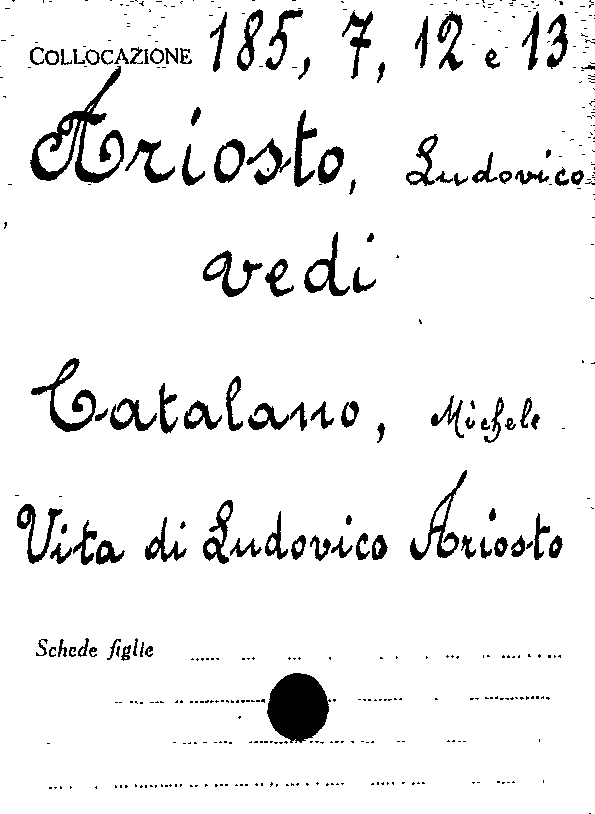 COLLOCAZIONE 185, 7, 12 e 13
Ariosto, Ludovico
vedi
Catalano, Michele
Vita di Ludovico Ariosto
Schede figlie